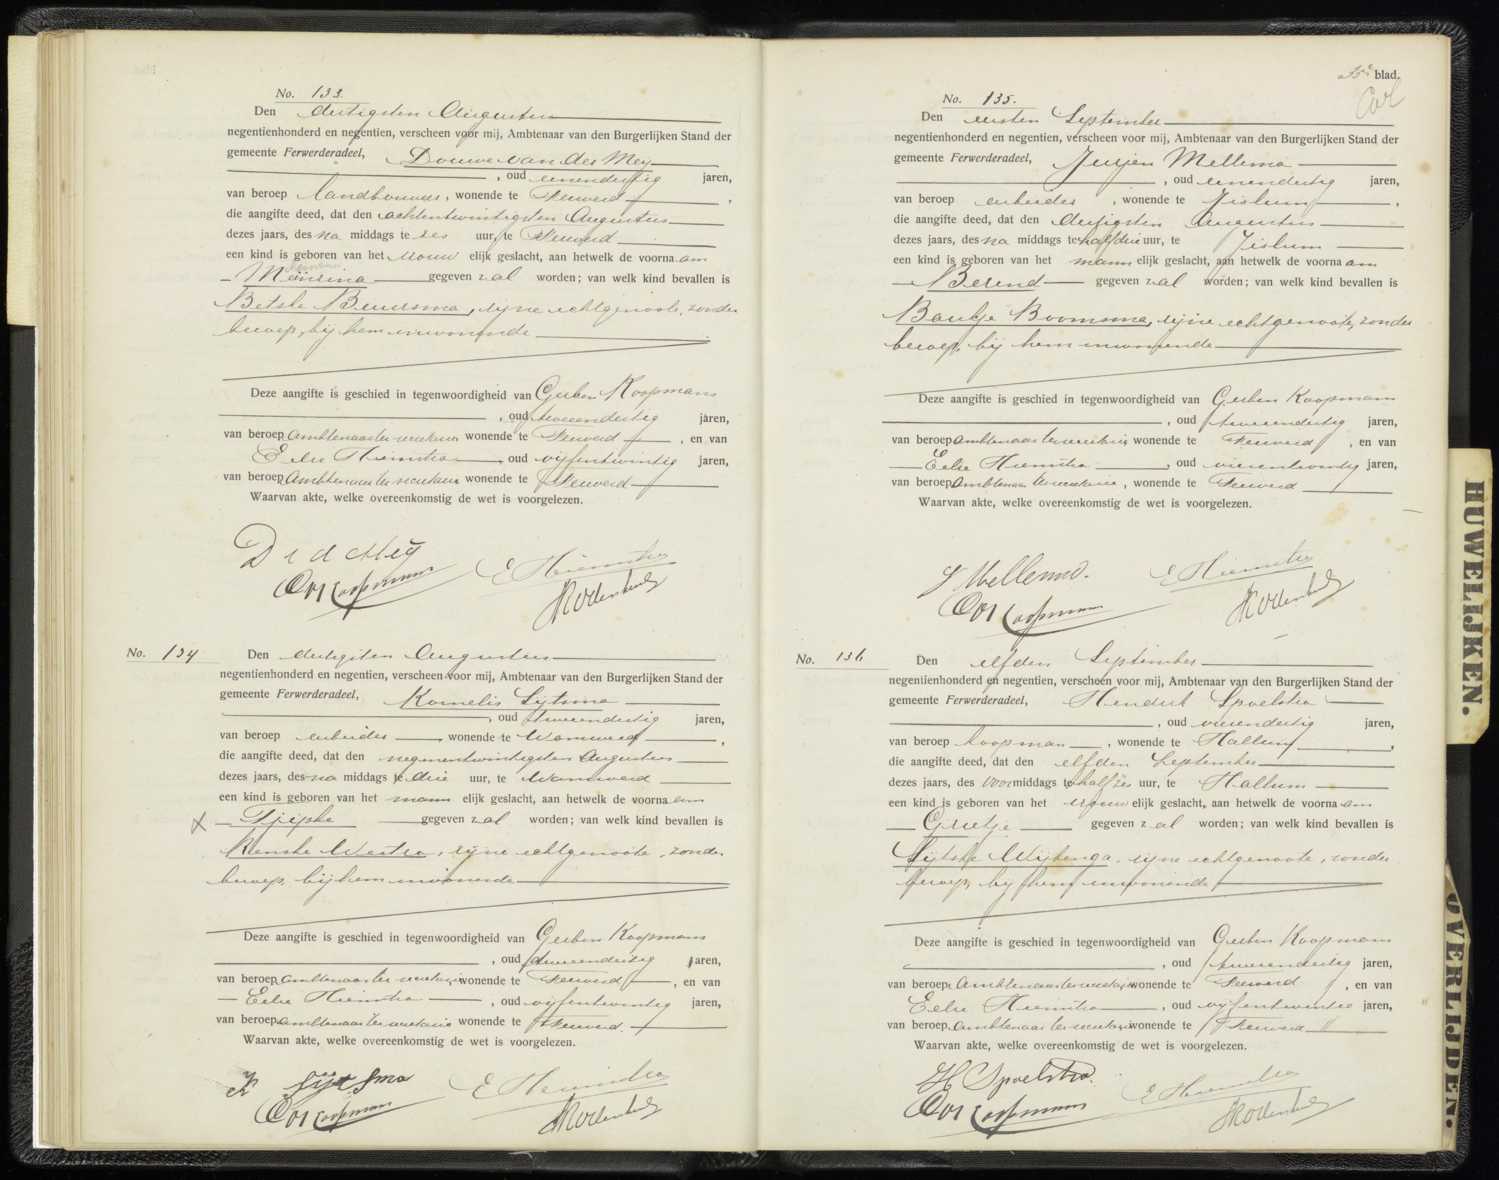 No. 133.
Den dertigsten Augustus
negentienhonderd en negentien, verscheen voor mij, Ambtenaar van den Burgerlijken Stand der
gemeente Ferwerderadeel, Douwe van der Mey
, oud eenendertig jaren,
van beroep landbouwer, wonende te Ferwerd,
die aangifte deed, dat den achtentwintigsten Augustus
dezes jaars, des na middags te zes uur, te Ferwerd
een kind is geboren van het vrouwelijk geslacht, aan hetwelk de voornaam
Meinsina gegeven zal worden; van welk kind bevallen is
Betske Beuersma, zijne echtgenoote, zonder
beroep, bij hem inwonende
Deze aangifte is geschied in tegenwoordigheid van Gerben Koopmans
, oud tweeendertig jaren,
van beroep ambtenaar ter secretarie wonende te Ferwerd, en van
Eelse Hiemstra oud vijfentwintig jaren,
van beroep Ambtenaar ter secretarie wonende te Ferwerd
Waarvan akte, welke overeenkomstig de wet is voorgelezen.
D v d Meij
G Koopmans
E Hiemstra
No. 134
Den dertigsten Augustus
negentienhonderd en negentien, verscheen voor mij, Ambtenaar van den Burgerlijken Stand der
gemeente Ferwerderadeel, Kornelis Sijtsma
, oud tweeendertig jaren,
van beroep arbeider, wonende te Wanswerd,
die aangifte deed, dat den negenentwintigsten Augustus
dezes jaars, des na middags te drie uur, te Wanswerd
een kind is geboren van het mannelijk geslacht, aan hetwelk de voornaam
x Tjipke gegeven zal worden; van welk kind bevallen is
Renske Westra, zijne echtgenoote, zonder
beroep, bij hem inwonende
Deze aangifte is geschied in tegenwoordigheid van Gerben Koopmans
, oud tweeendertig jaren,
van beroep ambtenaar ter secretarie wonende te Ferwerd, en van
Eelse Hiemstra, oud vijfentwintig jaren,
van beroep ambtenaar ter secretarie wonende te Ferwerd
Waarvan akte, welke overeenkomstig de wet is voorgelezen.
K Sijtsma
G Koopmans
E Hiemstra
35e blad.
No. 135.
Den eersten September
negentienhonderd en negentien, verscheen voor mij, Ambtenaar van den Burgerlijken Stand der
gemeente Ferwerderadeel, Jurjen Mellema
, oud eenendertig jaren,
van beroep arbeider, wonende te Jislum,
die aangifte deed, dat den dertigsten Augustus
dezes jaars, des na middags te half drie uur, te Jislum
een kind is geboren van het mannelijk geslacht, aan hetwelk de voornaam
Berend gegeven zal worden; van welk kind bevallen is
Baukje Boomsma, zijne echtgenoote, zonder
beroep, bij hem inwonende
Deze aangifte is geschied in tegenwoordigheid van Gerben Koopmans
, oud tweeendertig jaren,
van beroep ambtenaar ter secretarie wonende te Ferwerd, en van
Eelse Hiemstra, oud vierentwintig jaren,
van beroep ambtenaar ter secretarie, wonende te Ferwerd
Waarvan akte, welke overeenkomstig de wet is voorgelezen.
J Mellema.
G Koopmans
E Hiemstra
No. 136
Den elfden September
negentienhonderd en negentien, verscheen voor mij, Ambtenaar van den Burgerlijken Stand der
gemeente Ferwerderadeel, Hendrik Spoelstra
, oud vierendertig jaren,
van beroep koopman, wonende te Hallum,
die aangifte deed, dat den elfden September
dezes jaars, des voormiddags te half zes uur, te Hallum
een kind is geboren van het vrouwelijk geslacht, aan hetwelk de voornaam
Grietje gegeven zal worden; van welk kind bevallen is
Sijtske Wijbenga, zijne echtgenoote, zonder
beroep, bij hem inwonende
Deze aangifte is geschied in tegenwoordigheid van Gerben Koopmans
, oud tweeendertig jaren,
van beroep Ambtenaar ter secretarie wonende te Ferwerd, en van
Eelse Hiemstra, oud vijfentwintig jaren,
van beroep Ambtenaar ter secretarie wonende te Ferwerd
Waarvan akte, welke overeenkomstig de wet is voorgelezen.
H Spoelstra.
G Koopmans
E Hiemstra
HUWELIJKEN.
OVERLIJDEN.